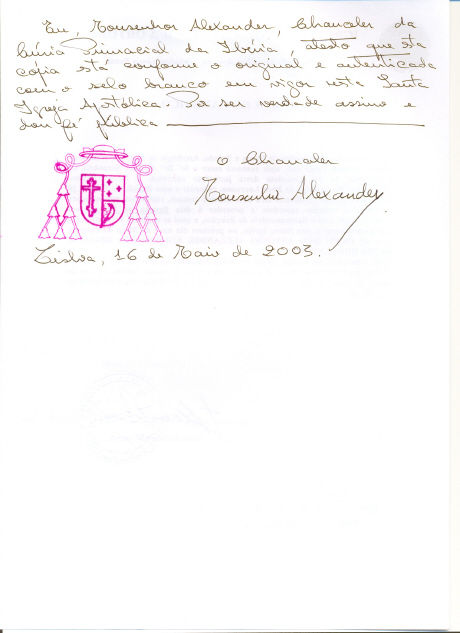 Eu, Monsenhor Alexander, Chanceler da
Cúria Primacial da Ibéria, atesto que esta
cópia está conforme o original e autenticada
com o selo branco em vigor nesta Santa
Igreja Apostólica. Por ser verdade assino e
dou fé pública
O Chanceler
Monsenhor Alexander
Lisboa, 16 de Maio de 2003.